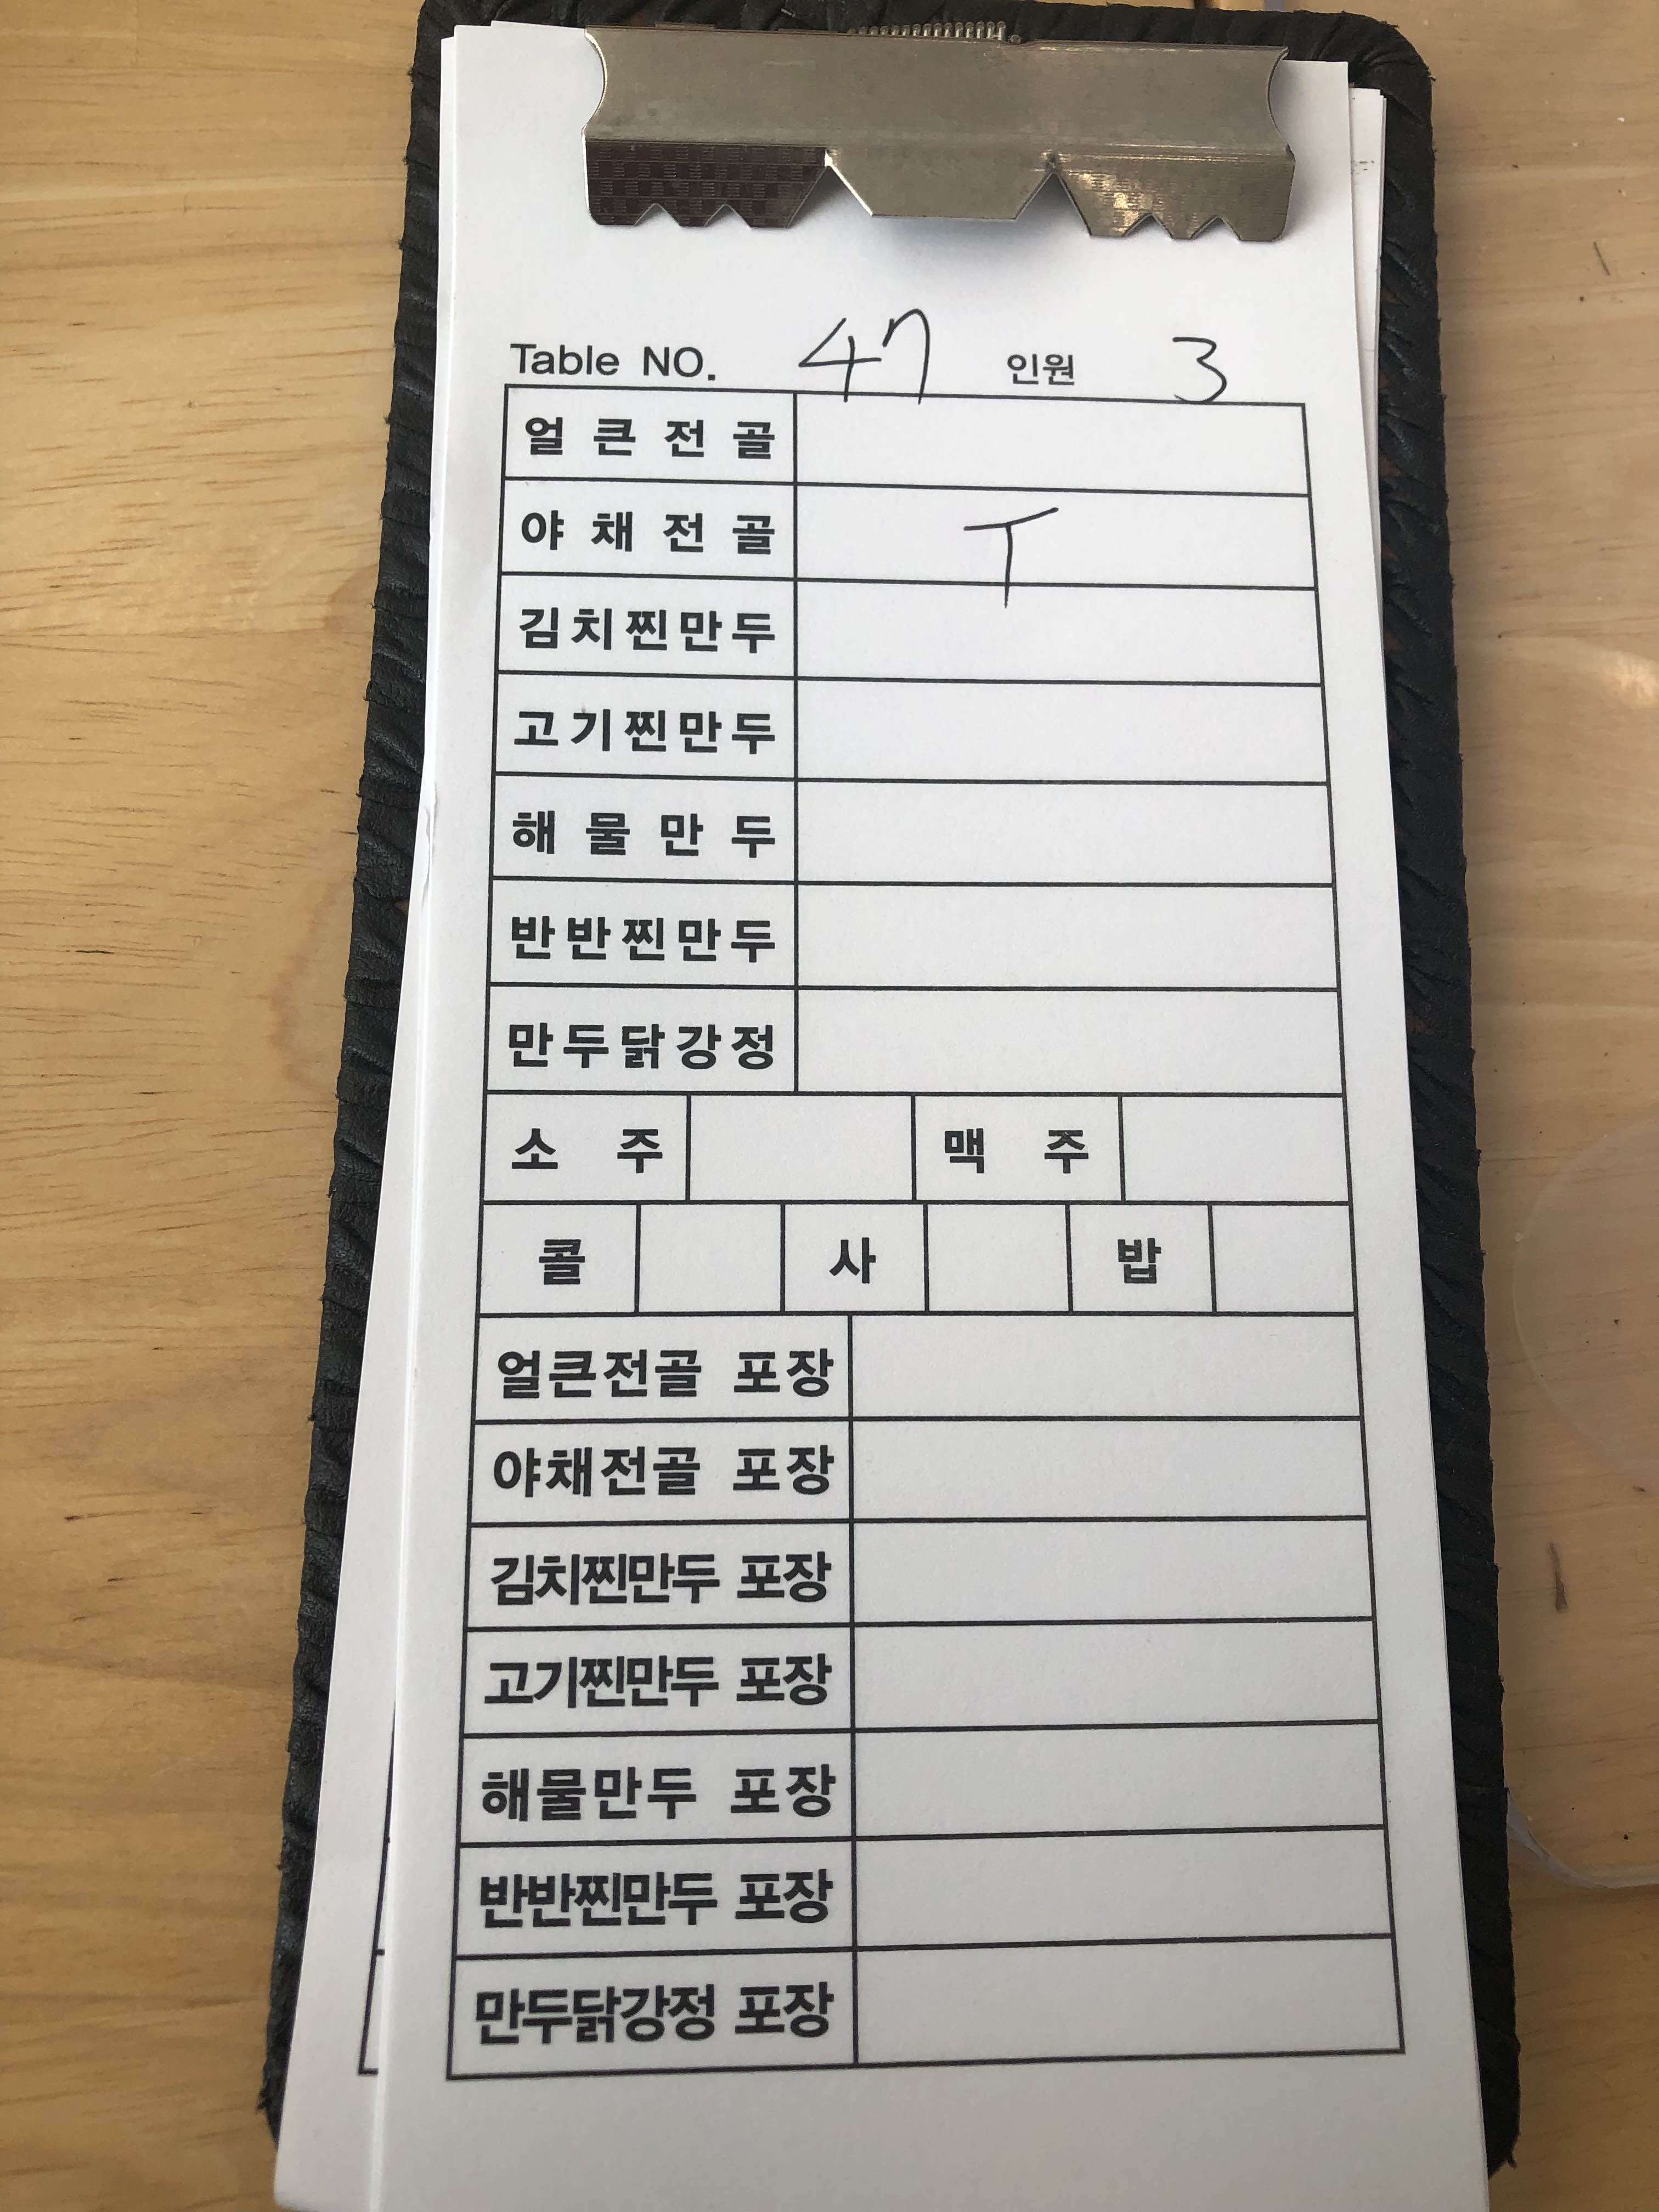 Table NO. 47 인원 3
얼큰전골
야채전골 T
김치찐만두
고기찐만두
해물만두
반반찐만두
만두닭강정
소주 맥주
콜 사 밥
얼큰전골 포장
야채전골 포장
김치찐만두 포장
고기찐만두 포장
해물만두 포장
반반찐만두 포장
만두닭강정 포장